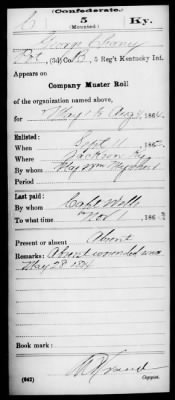 (Confederate.)
C 5 Ky.
(Mounted)
Co. B, 5 Reg't Kentucky Inf.
Appears on
Company Muster Roll
of the organization named above,
for May 1 to Aug 31, 1864.
Enlisted:
When Sept 11, 186
Where Jackson Ky
By whom Maj Wm
Period
Last paid:
By whom Capt Wells
To what time Nov 1, 186
Present or absent Absent
Remarks: Absent wounded since
May 28 1864
Book mark:
(642) Copyist.